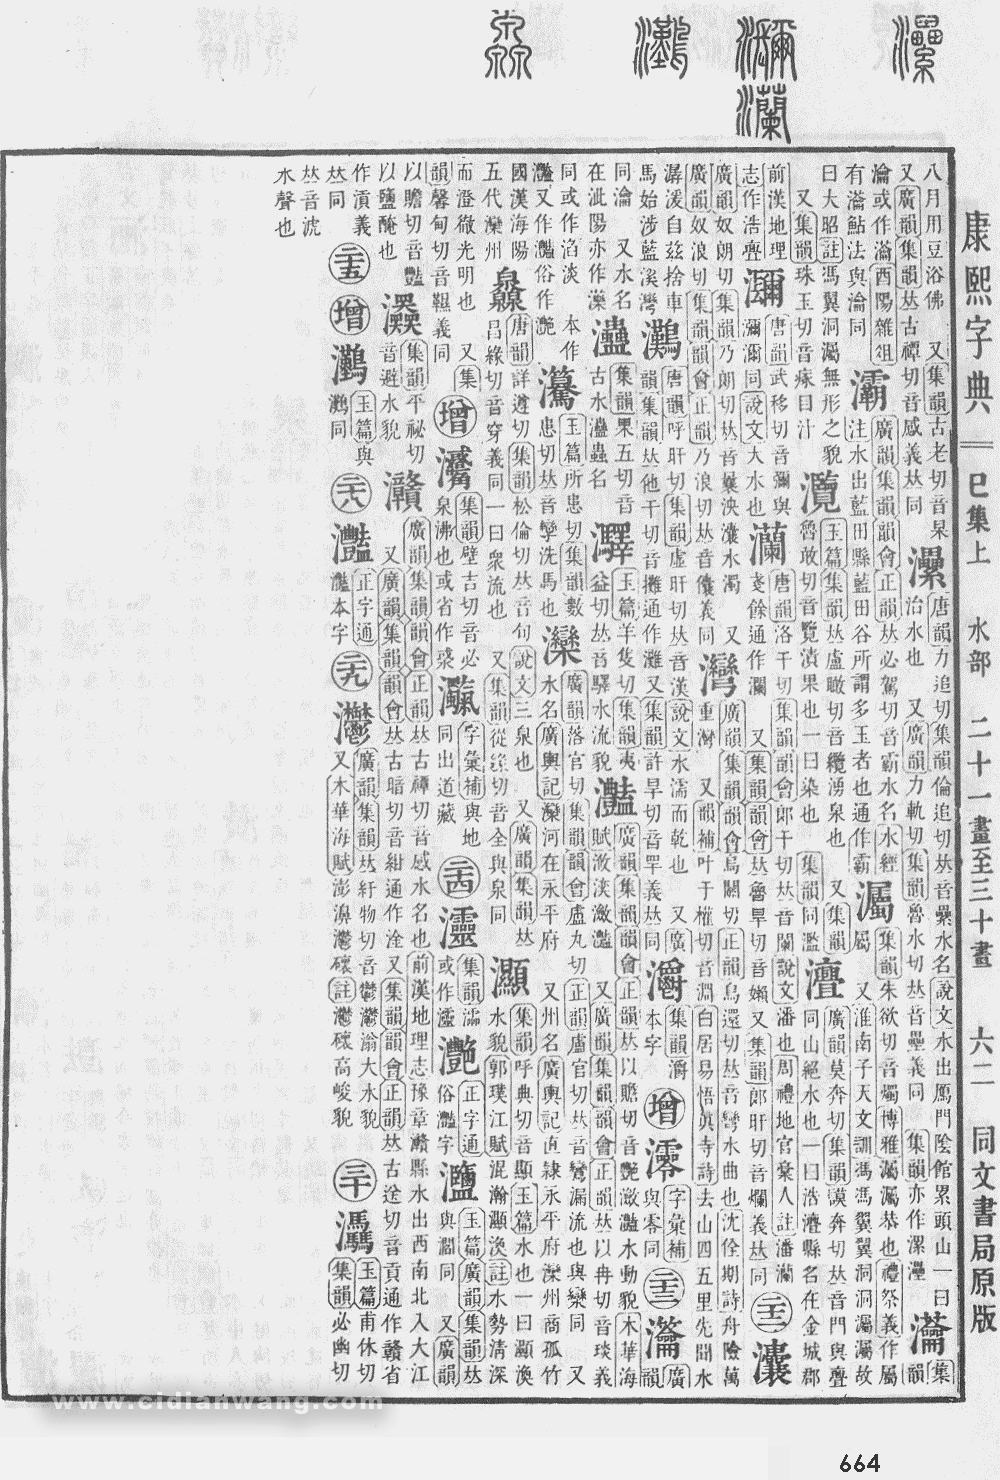 康熙字典 巳集上 水部 二十一畫至三十畫 六二 同文書局原版
八月用豆浴佛 又集韻古老切音杲
又廣韻集韻𠀤古禫切音感義𠀤同
灅
唐韻力追切集韻倫追切𠀤音纍水名說文水出鴈門陰館累頭山一曰
治水也 又廣韻力軌切集韻魯水切𠀤音壘義同 集韻亦作漯灅
集韻
瀹或作 酉陽雜俎
有瀹鮎法與瀹同
灞
廣韻集韻韻會正韻𠀤必駕切音霸水名水經
注水出藍田縣藍田谷所謂多玉者也通作霸
灟
集韻朱欲切音燭博雅灟灟恭也禮祭義作屬
屬 又淮南子天文訓馮馮翼翼洞洞灟灟故
曰大昭註馮翼洞灟無形之貌
又集韻珠玉切音瘃目汁
灠
玉篇集韻𠀤盧瞰切音纜湧泉也 又集韻
魯敢切音覽漬果也一曰染也 集韻同濫
廣韻莫奔切集韻謨奔切𠀤音門與亹同
山絕水也一曰浩亹縣名在金城郡
前漢地理
志作浩亹
唐韻武移切音彌與
瀰濔同說文大水也
灡
唐韻洛干切集韻韻會郎干切𠀤音闌說文潘也周禮地官槀人註潘灡
戔餘通作瀾 又集韻韻會𠀤魯旱切音嬾 又集韻郎旰切音爛義𠀤同
二十二
灢
廣韻奴朗切集韻乃朗切𠀤音曩泱灢水濁 又
廣韻奴浪切集韻韻會正韻乃浪切𠀤音儾義同
灣
廣韻集韻韻會烏關切正韻烏還切𠀤音彎水曲也沈佺期詩舟險萬
重灣 又韻補叶于權切音淵白居易悟眞寺詩去山四五里先聞水
潺湲自茲捨車
馬始涉藍溪灣
灘
唐韻呼旰切集韻虛旰切𠀤音漢說文水濡而乾也 又廣
韻集韻𠀤他干切音攤通作灘 又集韻許旱切音罕義𠀤同
集韻灂
本字
增
字彙補
與零同
二十三
廣韻
同瀹 又水名
在泚陽亦作灤
灥
集韻果五切音
古水蠱蟲名
玉篇羊隻切集韻夷
益切𠀤音驛水流貌
灩
廣韻集韻韻會正韻𠀤以贍切音豔瀲灩水動貌木華海
賦瀲淡瀲灩 又廣韻集韻韻會正韻𠀤以冉切音琰義
同或作淊淡 本作
灩又作灔俗作滟
玉篇所患切集韻數
患切𠀤音孿洗馬也
灤
廣韻落官切集韻韻會盧丸切正韻盧官切𠀤音鸞漏流也與㰈同 又
水名廣輿記灤河在永平府 又州名廣輿記直隸永平府灤州商孤竹
國漢海陽
五代灤州
灥
唐韻詳遵切集韻松倫切𠀤音旬說文三泉也 又廣韻集韻𠀤
昌緣切音穿義同一曰衆流也 又集韻從緣切音全與泉同
灦
集韻呼典切音顯玉篇水也一曰灦渙
水貌郭璞江賦混瀚灦渙註水勢清深
而澄徹光明也 又集
韻馨甸切音韅義同
增
集韻壁吉切音必
泉沸也或省作
字彙補與地
同出道藏
二十四
靈
集韻 或作
灔
正字通
俗灩字
玉篇廣韻集韻𠀤
以贍切音豔 與灩同 又廣韻
以鹽醃也
集韻平祕切
音避水貌
灨
廣韻集韻韻會正韻𠀤古禫切音感水名也前漢地理志豫章灨縣水出西南北入大江
又廣韻集韻韻會𠀤古暗切音紺通作淦 又集韻韻會正韻𠀤古送切音貢通作贛省
作滇義
𠀤同
二十五
增
玉篇與
同
二十八
灩
正字通
灩本字
二十九
灪
廣韻集韻𠀤紆物切音鬱灪滃大水貌
又木華海賦澎濞灪磙註灪磙高峻貌
三十
玉篇甫休切
集韻必幽切
𠀤音滮
水聲也
www.cidianwang.com
664